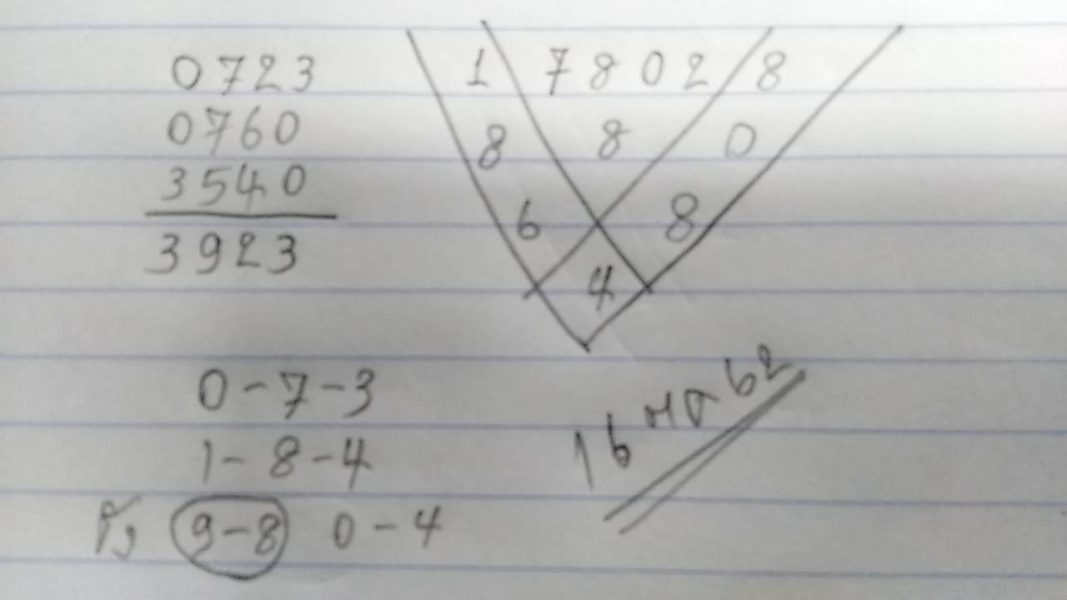 0723
0760
3540
3923
1 7 8 0 2 8
8 8 0
6 8
4
0-7-3
1-8-4
9-8 0-4
16 ตค 62